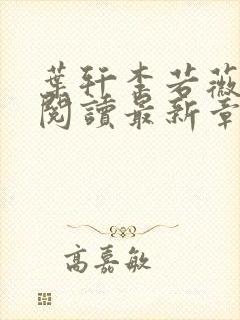 葉軒李若薇
閱讀最新章
高嘉敏